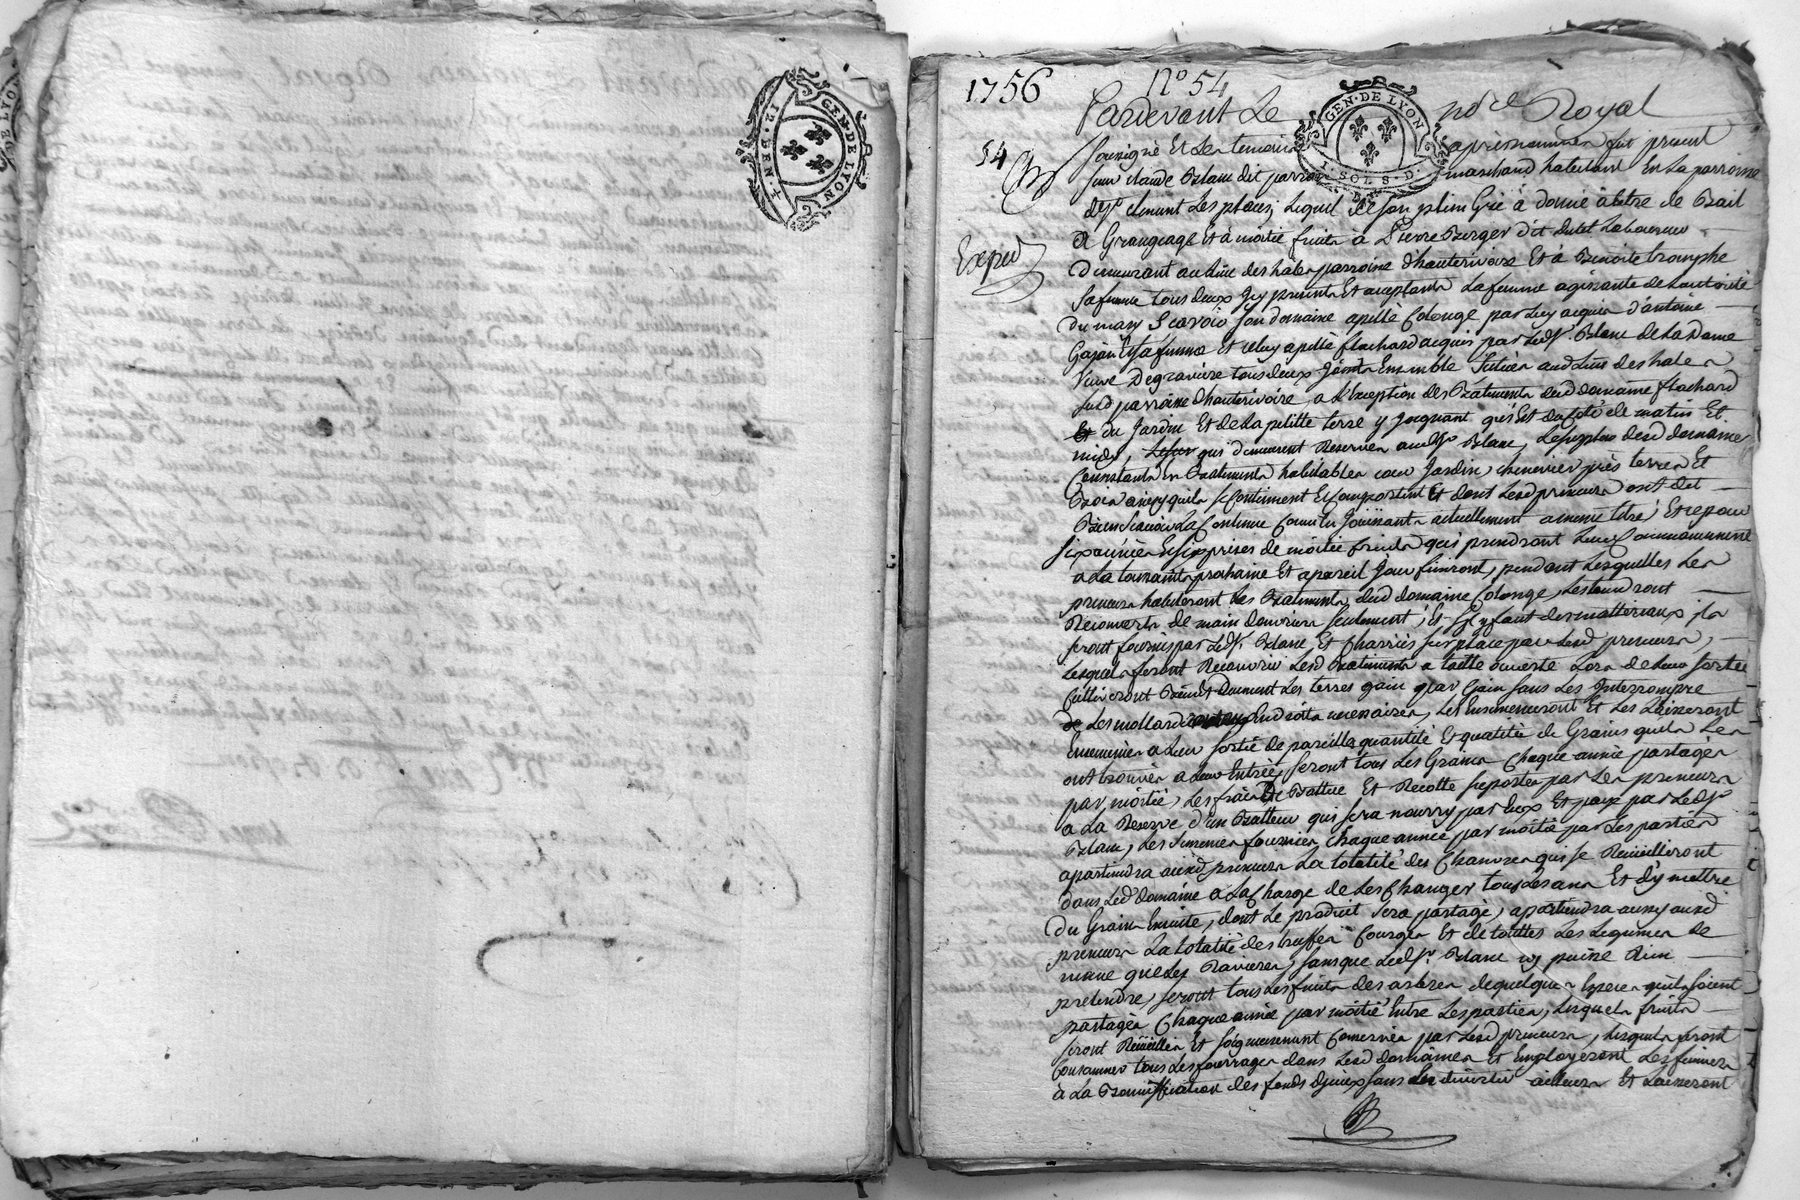 GEN. DE LYON
1756 No 54
Pardevant Le no.re Royal
GEN. DE LYON
I. SOL 8. D.
54
Soussigné Et Les temoins après nommés fut présent
sieur claude Blanc dit marchand habitant En La parroisse
de St clement Les places, Lequel de son plein Gré à donné à titre de Bail
Exped
A Grangeage Et à moitié fruits à Pierre Berger dit Laboureur
Demeurant au Lieu des hales parroisse d'hauterivoire Et à Benoite tromphe
sa femme tous deux Icy presents Et acceptants La femme agissante de L'autorité
du mary Scavoir son domaine apellé Colonge par Luy acquis d'antoine
Et sa femme Et celuy apellé flachard acquis par Led. Sr Blanc de La Dame
Veuve Degraviere tous deux Joints Ensemble Situés aud. Lieu des hales
susd. parroisse d'hauterivoire, a L'Exception des Batiments dud. domaine flachard
Et du Jardin Et de La petitte terre y Joignant qui Est du coté de matin Et
midy, qui demeurent Reservés aud. Sr Blanc, Le surplus desd. domaines
Consistants En Batiments habitables cour Jardin, chenevier près terres Et
Bois ainsy quils se Contiennent Et Comportent Et dont Lesd. preneurs ont dit
Bien Scavoir La Continue Comme Jouissants actuellement a meme titre, Et ce pour
six années Et six prises de moitié fruits qui prendront Leur Commencement
a La toussaints prochaine Et a pareil Jour finiront, pendant Lesquelles Les
preneurs habiteront Les Batiments dud. domaine Colonge, Les tiendront
Recouverts de main d'ouvriers seulement, Et s'il y faut des matteriaux ils
seront fournis par Led. Sr Blanc Et Charriés sur place par Lesd. preneurs,
Lesquels feront Recouvrir Lesd. Batiments a taille ouverte Lors de Leur sortie
Cultiveront Bien Et Duement Les terres gain par Gain sans Les Interrompre
Les Endroits necessaires, Les Ensemenceront Et Les Laisseront
Ensemencées a Leur sortie de pareille quantité Et qualité de Grains quils Les
ont trouvées a Leur Entrée, seront tous Les Grains Chaque année partagés
par moitié, Les frais De Battue Et Recolte suportés par Les preneurs
a La Reserve d'un Batteur qui sera nourry par Eux Et payé par Led. Sr
Blanc, Les semences fournies Chaque année par moitié par Les parties
apartiendra auxd. preneurs La totalité des Chanvres qui se Recueilleront
dans Led. domaine a La Charge de Les Changer tous Les ans Et d'y mettre
du Grain Ensuite, dont Le produit sera partagé, apartiendra aussy auxd.
preneurs La totalité des truffes Courges Et de touttes Les Legumes de
meme que Les Ravieres, sans que Led. Sr Blanc n'y puisse Rien
pretendre, seront tous Les fruits des arbres de quelques Especes quils soient
partagés Chaque année par moitié Entre Les parties, Lesquels fruits
seront Receuillis Et soigneusement Conservés par Lesd. preneurs, Lesquels feront
Consommer tous Les fourrages dans Lesd. domaines Et Employeront Les fumiers
à La Bonniffication des fonds d'Iceux sans Les divertir ailleurs Et Laisseront